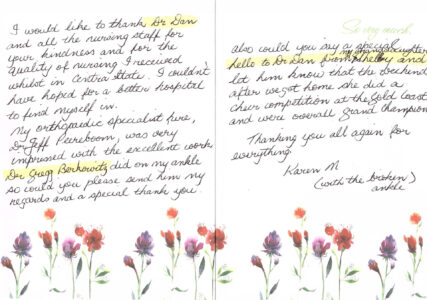 I would like to thank Dr Dan
and all the nursing staff for
your kindness and for the
quality of nursing I received
whilst in Central State. I couldn't
have hoped for a better hospital
to find myself in.
My orthopaedic specialist here,
Dr Jeff Peereboom, was very
impressed with the excellent work
Dr Gregg Berkowitz did on my ankle
so could you please send him my
regards and a special thank you
So very much.
also could you say a special
hello to Dr Dan from my granddaughter and
let him know that the weekend
after we got home she did a
cheer competition at the Gold Coast
and were overall Grand Champion
Thanking you all again for
everything
Karen M
(with the broken)
ankle